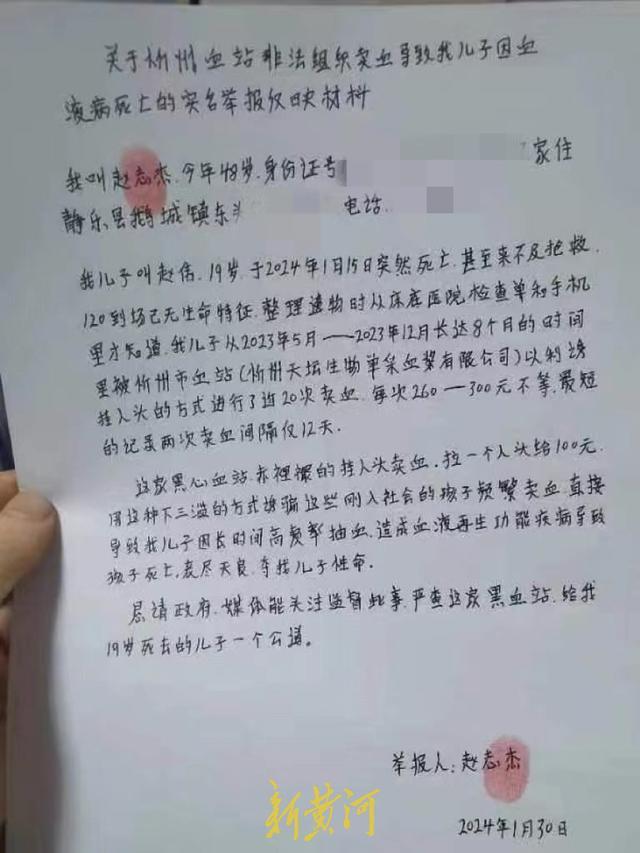 关于忻州血站非法组织卖血导致我儿子因血
液病死亡的实名举报反映材料
我叫赵志杰.今年48岁.身份证号 家住
静乐县鹅城镇东头 电话.
我儿子叫赵伟.19岁.于2024年1月15日突然死亡.甚至来不及抢救.
120到场已无生命特征.整理遗物时从床底医院检查单和手机
里才知道.我儿子从2023年5月——2023年12月长达8个月的时间
里被忻州市血站(忻州天坛生物单采血浆有限公司)以利诱
挂人头的方式进行了近20次卖血.每次260—300元不等.最短
的记录两次卖血间隔仅12天.
这家黑心血站.赤裸裸的挂人头卖血.拉一个人头给100元.
用这种下三滥的方式诱骗这些刚入社会的孩子频繁卖血.直接
导致我儿子因长时间高频率抽血.造成血液再生功能疾病导致
孩子死亡.丧尽天良.夺我儿子性命.
恳请政府.媒体能关注监督此事.严查这家黑血站.给我
19岁死去的儿子一个公道。
举报人:赵志杰
2024年1月30日
新黄河